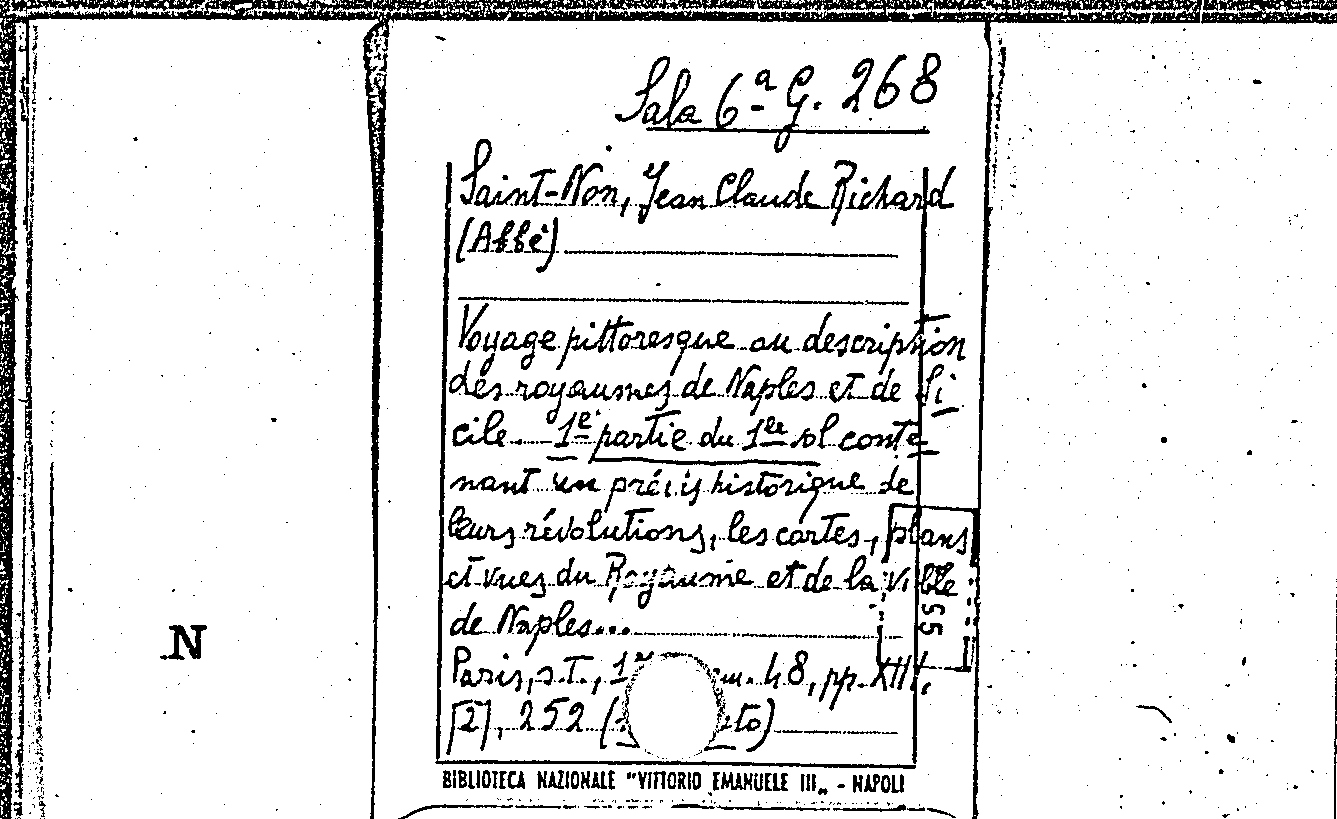 Sala 6ª G. 268
Saint-Non, Jean Claude Richard
(Abbé)
Voyage pittoresque ou description
des royaumes de Naples et de Si
cile. 1e partie du 1er vol conte
nant un précis historique de
leurs révolutions, les cartes, plans
et vues du Royaume et de la ville
de Naples...
55
N
Paris, s.t., cm. 48, pp. XIII,
[2], 252
BIBLIOTECA NAZIONALE "VITTORIO EMANUELE III„ - NAPOLI